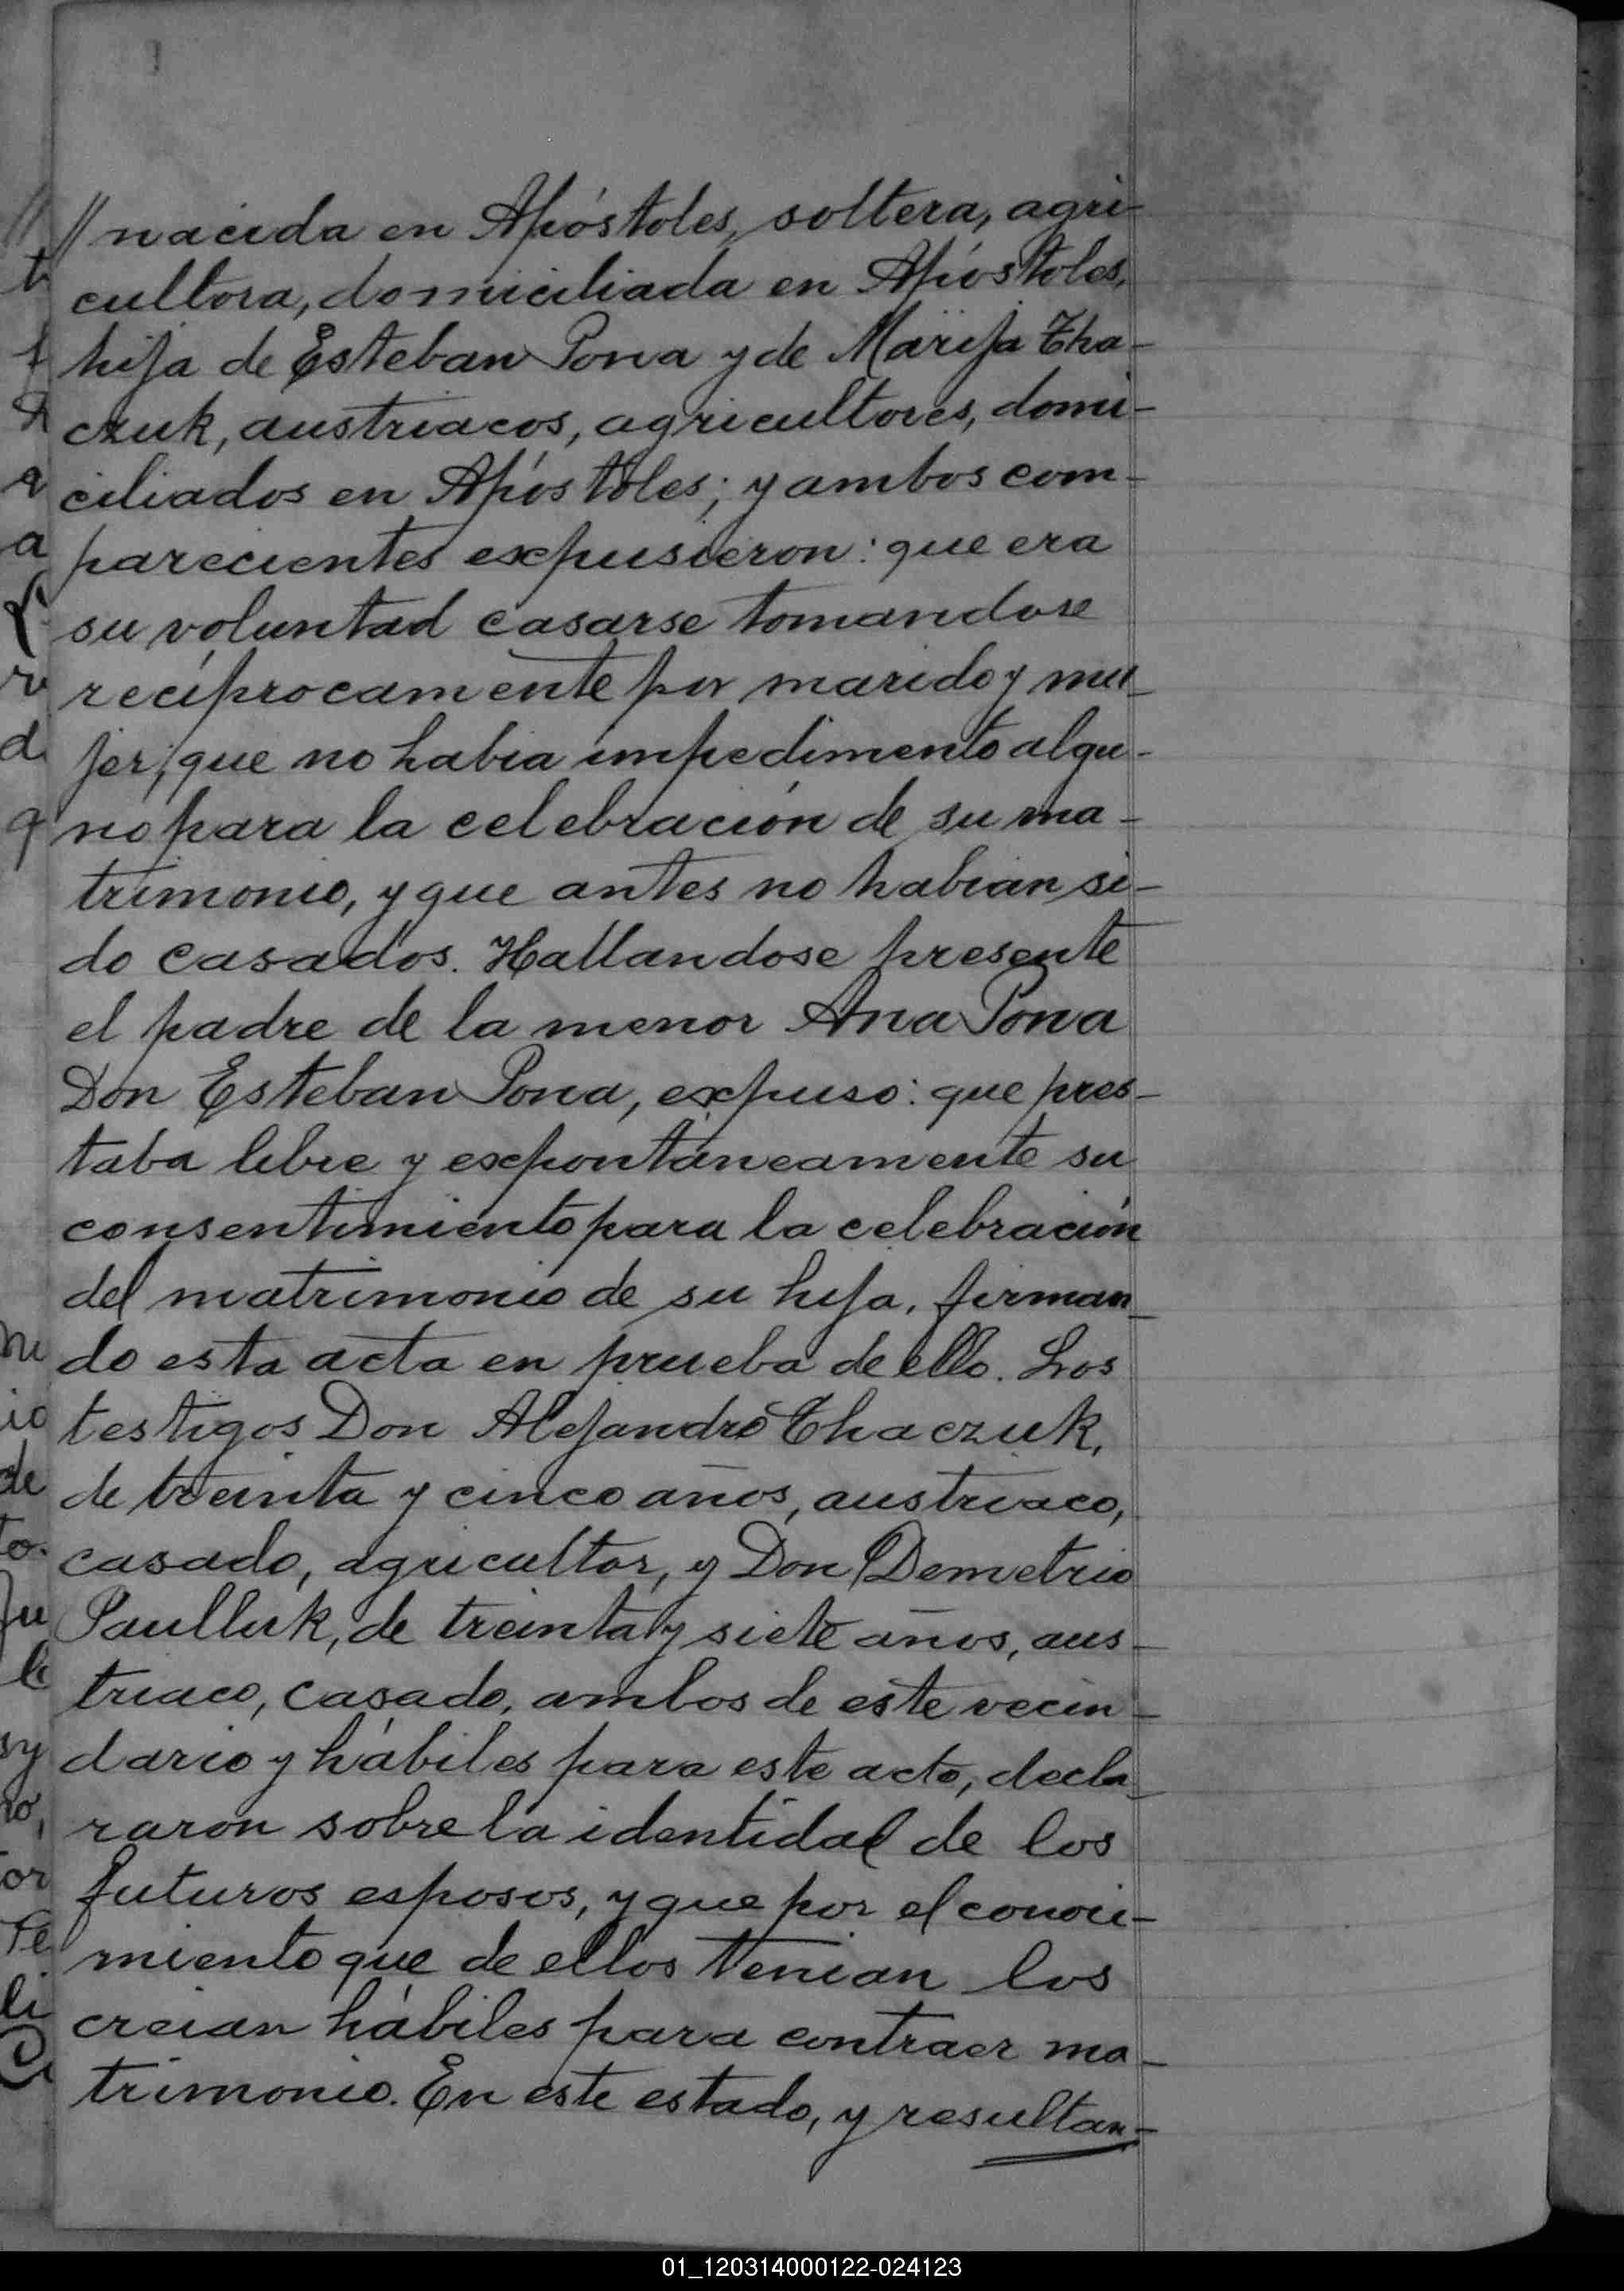 // nacida en Apóstoles, soltera, agri-
cultora, domiciliada en Apóstoles,
hija de Esteban Pona y de Marija Tha-
czuk, austriacos, agricultores, domi-
ciliados en Apóstoles; y ambos com-
parecientes expusieron: que era
su voluntad casarse tomandose
recíprocamente por marido y mu-
jer; que no habia impedimento algu-
no para la celebración de su ma-
trimonio, y que antes no habian si-
do casados. Hallandose presente
el padre de la menor Ana Pona
Don Esteban Pona, expuso: que pres-
taba libre y expontáneamente su
consentimiento para la celebración
del matrimonio de su hija, firman-
do esta acta en prueba de ello. Los
testigos Don Alejandro Thaczuk,
de treinta y cinco años, austriaco,
casado, agricultor, y Don Demetrio
Paulluk, de treinta y siete años, aus-
triaco, casado, ambos de este vecin-
dario y hábiles para este acto, decla-
raron sobre la identidad de los
futuros esposos, y que por el conoci-
miento que de ellos tenian los
creian hábiles para contraer ma-
trimonio. En este estado, y resultan-
01_120314000122-024123